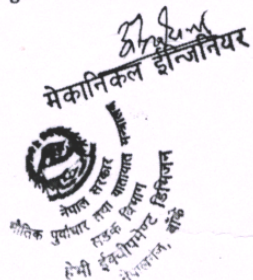 मेकानिकल ईन्जिनियर
नेपाल सरकार
भौतिक पुर्वाधार तथा यातायात मन्त्रालय
सडक विभाग
हेभी ईक्वीपमेण्ट डिभिजन
नेपालगन्ज, बाँके